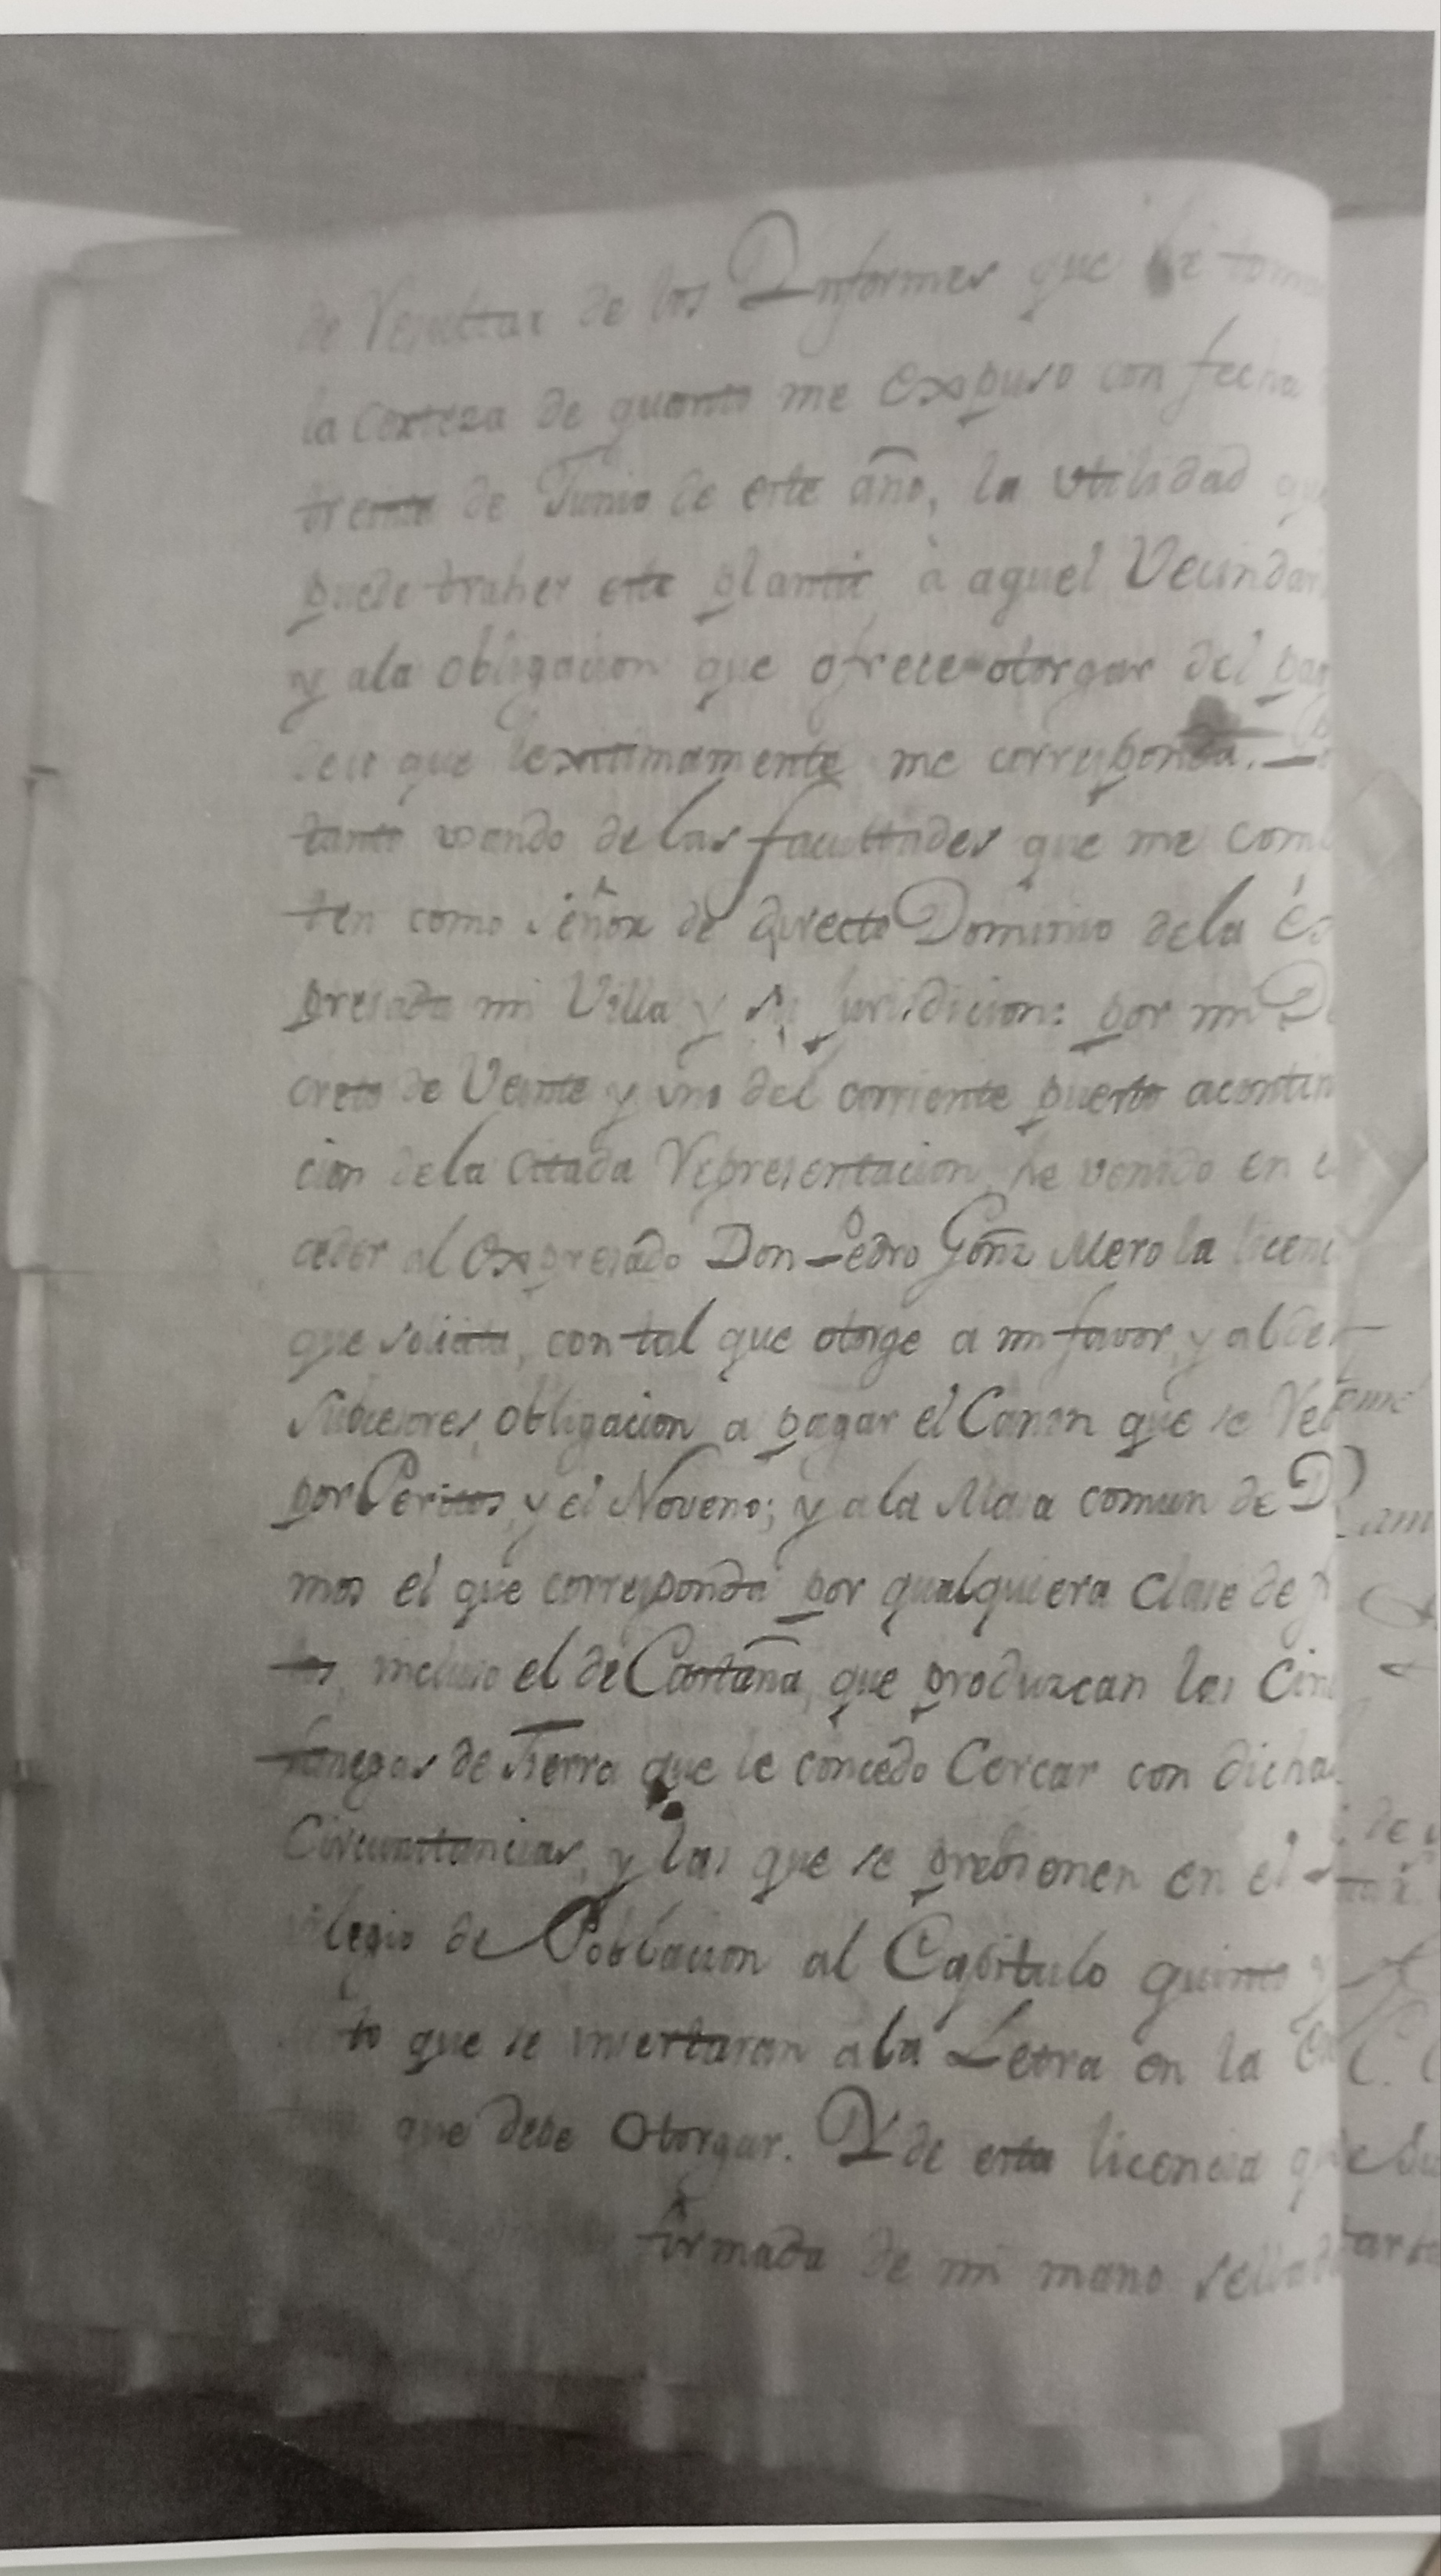 de Resultar de los Informes que he toma
la certeza de quanto me expuso con fecha
treinta de Junio de este año, la utilidad qu
puede traher este plantio à aquel Vecindari
y ala obligacion que ofrece otorgar del pag
que lexitimamente me corresponda.
tanto usando de las facultades que me com
ten como Señor de directo Dominio dela ex
presada mi Villa y su jurisdicion: por mi D
creto de Veinte y uno del corriente puesto acontin
cion dela citada Representacion, he venido en c
ceder al expresado Don Pedro Gonz Mero la licenc
que solicita, con tal que otorge a mi favor, y al de
Subcesores, obligacion a pagar el Canon que se Re
por Peritos, y el Noveno; y ala Masa comun de D
mos el que corresponda por qualquiera clase de f
tos, incluso el de Castaña, que produzcan las Cin
fanegas de Tierra que le concedo Cercar con dichas
Circunstancias, y las que se prebienen en el
vilegio de Poblacion al Capitulo quinto y
to que se insertaran ala Letra en la
que debe Otorgar. Y de esta licencia que
firmada de mi mano sellada